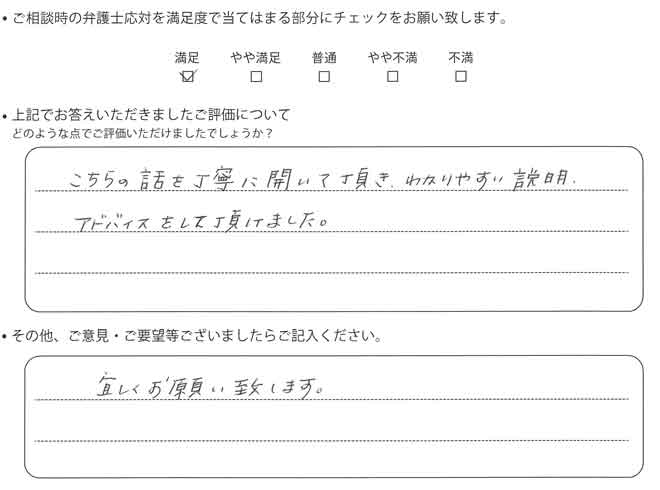 • ご相談時の弁護士応対を満足度で当てはまる部分にチェックをお願い致します。
満足 やや満足 普通 やや不満 不満
☑ □ □ □ □
• 上記でお答えいただきましたご評価について
どのような点でご評価いただけましたでしょうか？
こちらの話を丁寧に開いて頂き、わかりやすい説明、
アドバイスをして頂けました。
• その他、ご意見・ご要望等ございましたらご記入ください。
宜しくお願い致します。